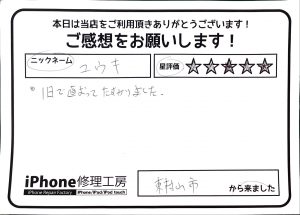 本日は当店をご利用頂きありがとうございます！
ご感想をお願いします！
ニックネーム ユウキ
星評価 ☆☆☆☆☆
1日で直って たすかりました.
iPhone修理工房
iPhone Repair Factory iPhone/iPad/iPod touch
東村山市 から来ました